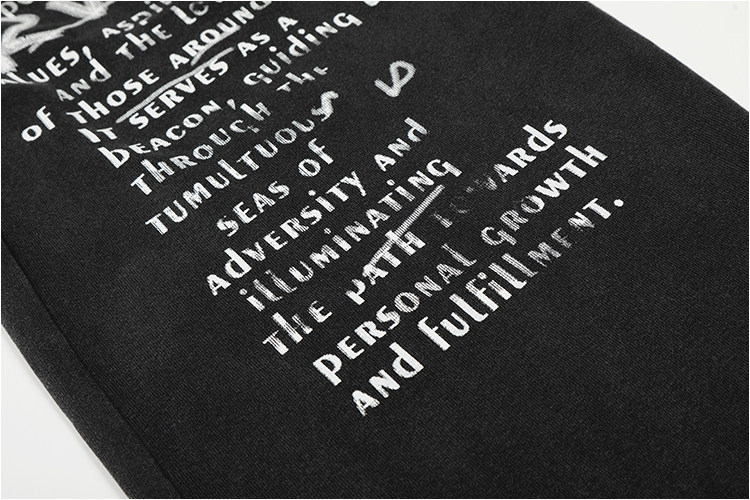 and the
of those around
It serves as a
beacon, guiding
through the
tumultuous
seas of
adversity and
illuminating
the path towards
personal growth
and fulfillment.